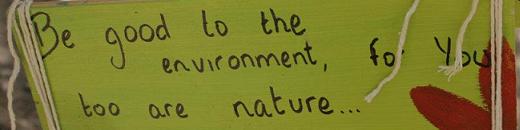 Be good to the
environment, for You
too are nature...